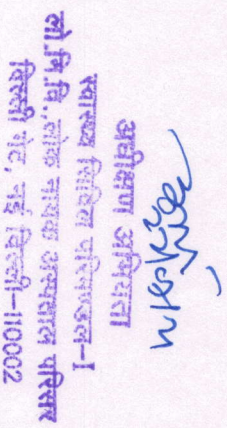 अधीक्षण अभियन्ता
स्वास्थ्य सिविल परिमण्डल-I
लो.नि.वि.,लोक नायक अस्पताल परिसर
दिल्ली गेट, नई दिल्ली-110002